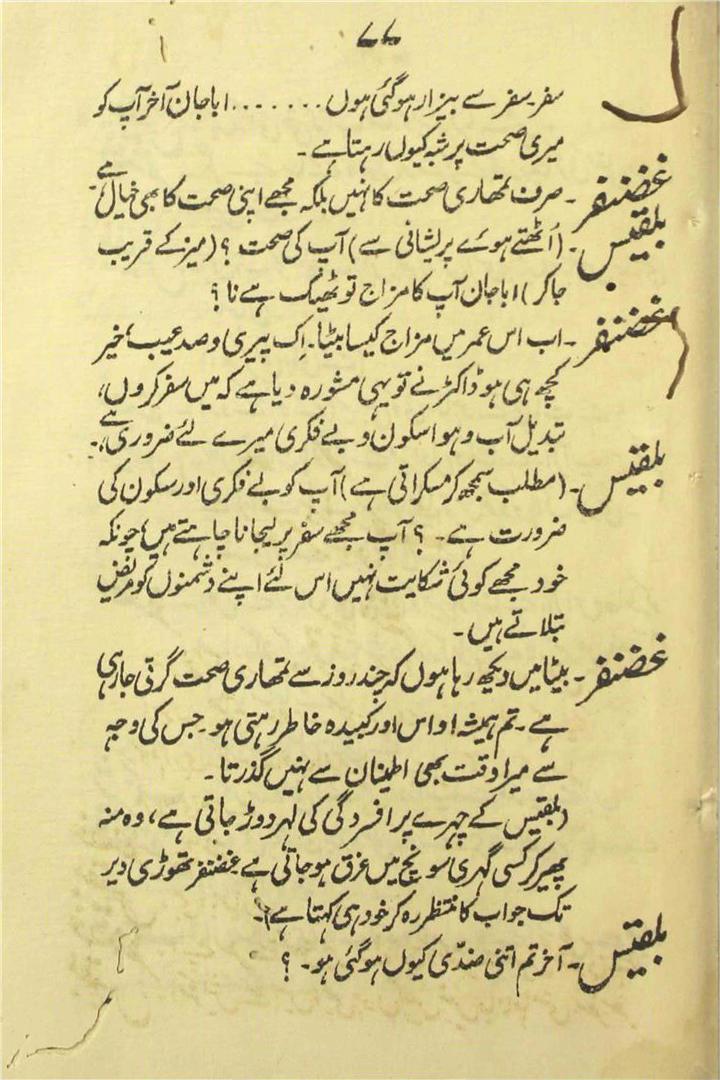 ۷۷
سفر۔ سفر سے بیزار ہوگئی ہوں ....... ابا جان آخر آپ کو
میری صحت پر شبہ کیوں رہتا ہے۔
غضنفر ۔ صرف تمھاری صحت کا نہیں بلکہ مجھے اپنی صحت کا بھی خیال ہے۔
بلقیس ۔ (اُٹھتے ہوئے پریشانی سے) آپ کی صحت ؟ (میز کے قریب
جاکر) ابا جان آپ کا مزاج تو ٹھیک ہے نا ؟
غضنفر ۔ اب اس عمر میں مزاج کیسا بیٹا۔ اِک پیری و صد عیب، خیر
کچھ ہی ہو ڈاکٹر نے تو یہی مشورہ دیا ہے کہ میں سفر کروں،
تبدیل آب و ہوا سکون و بے فکری میرے لئے ضروری ہے۔
بلقیس ۔ (مطلب سمجھ کر مسکراتی ہے) آپ کو بے فکری اور سکون کی
ضرورت ہے۔ ؟ آپ مجھے سفر پر لیجانا چاہتے ہیں، چونکہ
خود مجھے کوئی شکایت نہیں اس لئے اپنے دشمنوں کو مریض
بتلاتے ہیں۔
غضنفر ۔ بیٹا میں دیکھ رہا ہوں کہ چند روز سے تمھاری صحت گرتی جارہی
ہے۔ تم ہمیشہ اداس اور کبیدہ خاطر رہتی ہو۔ جس کی وجہ
سے میرا وقت بھی اطمینان سے نہیں گذرتا۔
(بلقیس کے چہرے پر افسردگی کی لہر دوڑ جاتی ہے، وہ منہ
پھیر کر کسی گہری سونچ میں غرق ہوجاتی ہے غضنفر تھوڑی دیر
تک جواب کا منتظر رہ کر خود ہی کہتا ہے)۔
بلقیس ۔ آخر تم اتنی ضدّی کیوں ہوگئی ہو۔ ؟